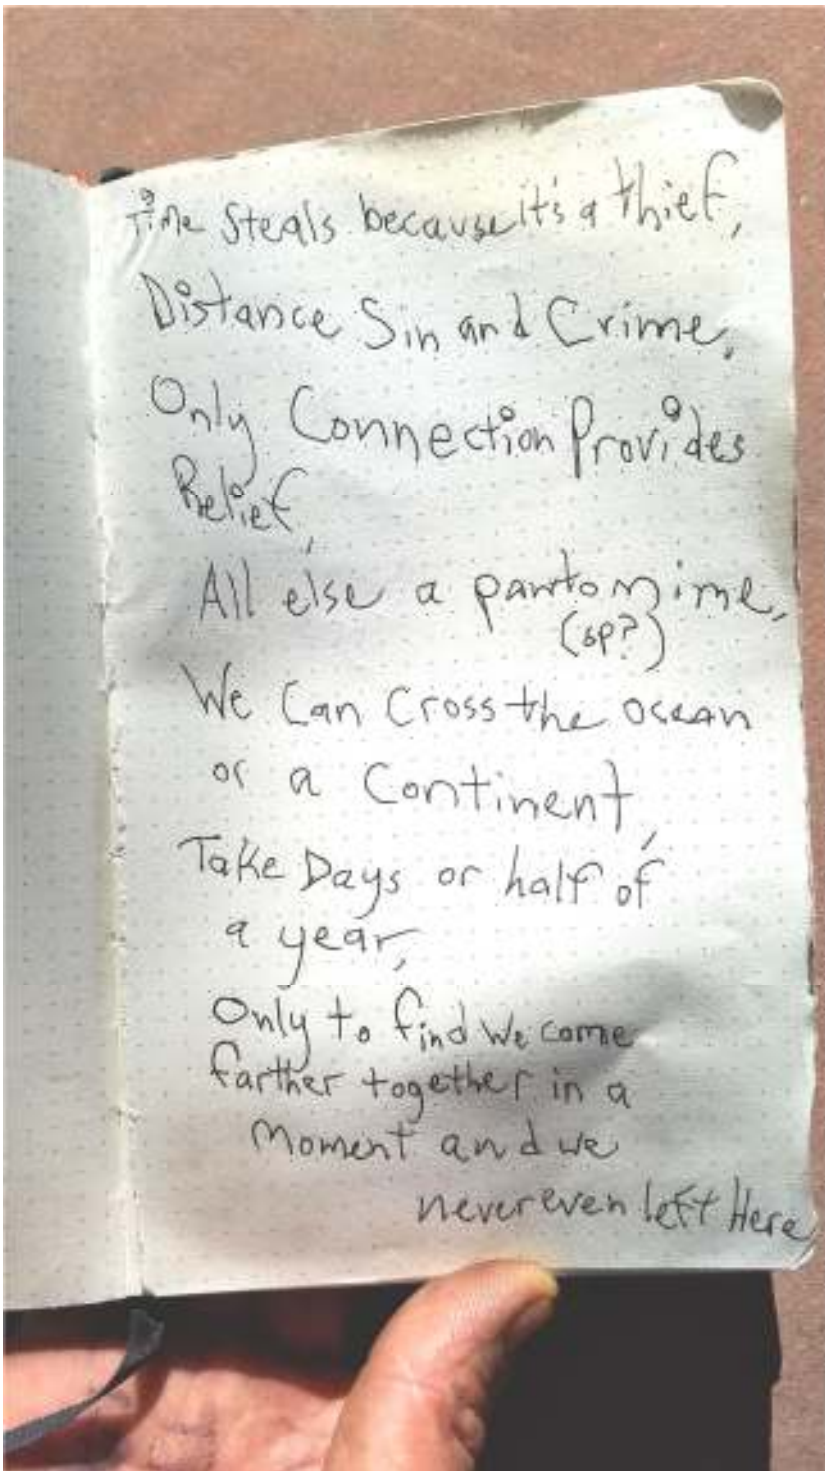 Time Steals because it's a thief,
Distance Sin and Crime,
Only Connection Provides
Relief,
All else a pantomime,
(sp?)
We Can Cross the ocean
or a Continent,
Take Days or half of
a year,
Only to find we come
farther together in a
Moment and we
never even left Here